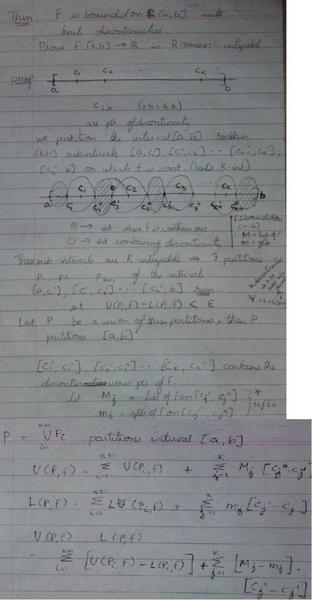 Thm f is bounded on [a, b] with
finit discontinuities
Prove f [a,b] → R is Riemann- integrable
proof
a c₁ c₂ cₖ b
cᵢ's (1≤i≤k)
are pt of discontinuity
we partition the interval [a, b] to
(k+1) subintervals [a, c₁'], [c₁'', c₂'] ... 
[cₖ'', b] on which f is cont. (hence R-int)
a c₁ c₂ c₃ cₖ b
→ int where f is continuous
O → int containing discontinuity
f is bounded on
[a, b]
M = lub of f
m = glb f
These sub-intervals are R-integrable ⇒ ∃ partitions
P₁, P₂ ... Pₖ₊₁ of the interval
[a, c₁'], [c₁'', c₂'] ... [cₖ'', b]
st U(Pᵢ, f) - L(Pᵢ, f) < ε
Let P be a union of these partitions, then P
partitions [a, b]
[c₁', c₁''], [c₂', c₂''] ... [cₖ', cₖ''] contains the
discontinuous pts of F.
let Mⱼ = lub of f on [cⱼ', cⱼ'']
mⱼ = glb f on [cⱼ', cⱼ'']
P = ∪ᵢ₌₁ᵏ⁺¹ Pᵢ partitions interval [a, b]
U(P, f) = Σᵢ₌₁ᵏ⁺¹ U(Pᵢ, f) + Σⱼ₌₁ᵏ Mⱼ [cⱼ'' - cⱼ']
L(P, f) = Σᵢ₌₁ᵏ⁺¹ L(Pᵢ, f) + Σⱼ₌₁ᵏ mⱼ [cⱼ'' - cⱼ']
U(P, f) - L(P, f)
= Σᵢ₌₁ᵏ⁺¹ [U(Pᵢ, f) - L(Pᵢ, f)] + Σⱼ₌₁ᵏ [Mⱼ - mⱼ].
[cⱼ'' - cⱼ']